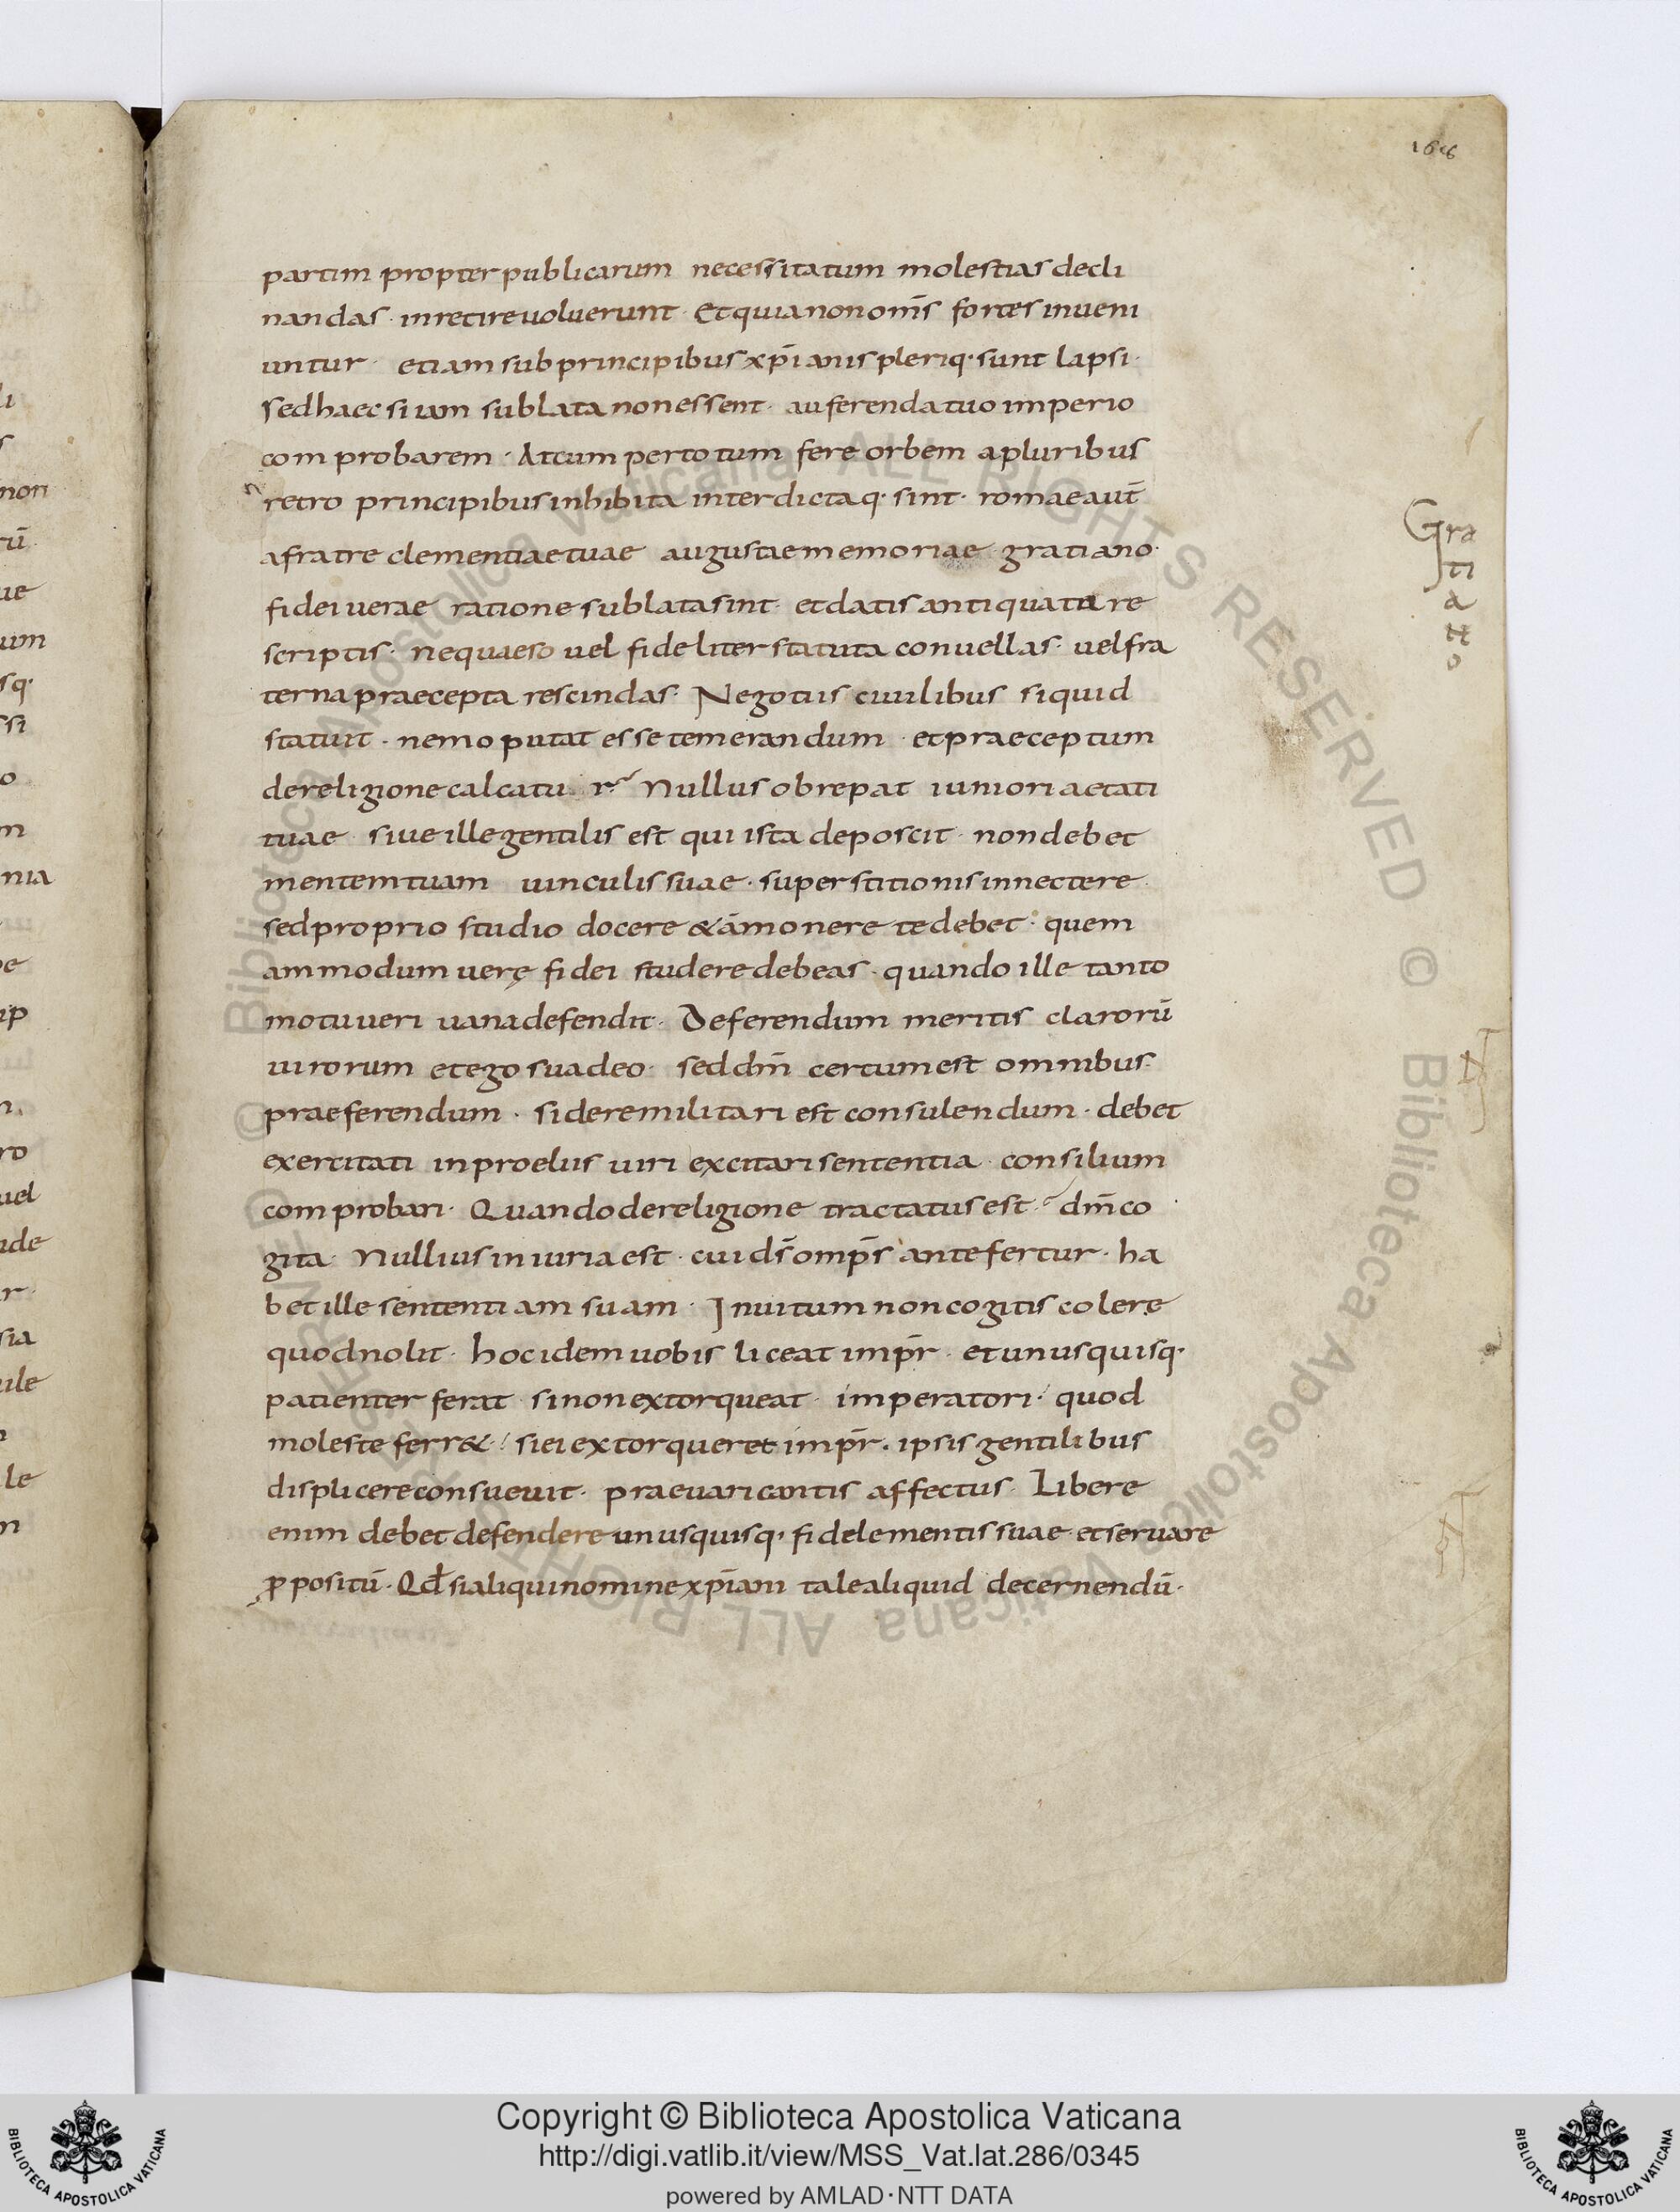 166
partim propter publicarum necessitatum molestias decli
nandas · inretire voluerunt · Et quia non om̄s fortes inveni
untur · etiam sub principibus xp̄ianis pleriq· sunt lapsi ·
Sed haec si iam sublata non essent · auferenda tuo imperio
comprobarem · At cum per totum fere orbem a pluribus
retro principibus inhibita interdictaq· sint · romae aut̄
a fratre clementiae tuae augustae memoriae gratiano ·
fidei verae ratione sublata sint · et datis antiquata re
scriptis · ne quaeso vel fideliter statuta convellas · vel fra
terna praecepta rescindas · Negotiis civilibus si quid
statuit · nemo putat esse temerandum · et praeceptum
de religione calcatur · Nullus obrepat iuniori aetati
tuae · sive ille gentilis est qui ista deposcit · non debet
mentem tuam vinculis suae · superstitionis innectere ·
sed proprio studio docere & āmonere te debet · quem
ammodum verę fidei studere debeas · quando ille tanto
motu veri vana defendit · Deferendum meritis clarorū
virorum et ego suadeo · sed dm̄ certum est omnibus ·
praeferendum · si de re militari est consulendum · debet
exercitati in proeliis viri excitari sententia · consilium
comprobari · Quando de religione tractatus est · dm̄ co
gita · Nullius iniuria est · cui ds̄ omps̄ antefertur · ha
bet ille sententiam suam · Invitum non cogitis colere
quod nolit · hoc idem vobis liceat imp̄r · et unusquisq·
patienter ferat si non extorqueat · imperatori · quod
moleste ferr& · si ei extorqueret imp̄r · ipsis gentilibus
displicere consuevit · praevaricantis affectus · Libere
enim debet defendere unusquisq· fidele mentis suae et servare
ꝓpositū · Qd̄ si aliqui nomine xp̄iani tale aliquid decernendū ·
Gra
ti
a
n
o
Copyright © Biblioteca Apostolica Vaticana
http://digi.vatlib.it/view/MSS_Vat.lat.286/0345
powered by AMLAD·NTT DATA
BIBLIOTECA APOSTOLICA VATICANA
BIBLIOTECA APOSTOLICA VATICANA